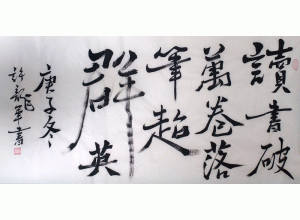 讀書破
萬卷落
筆超
群英
庚子冬
許龍军書